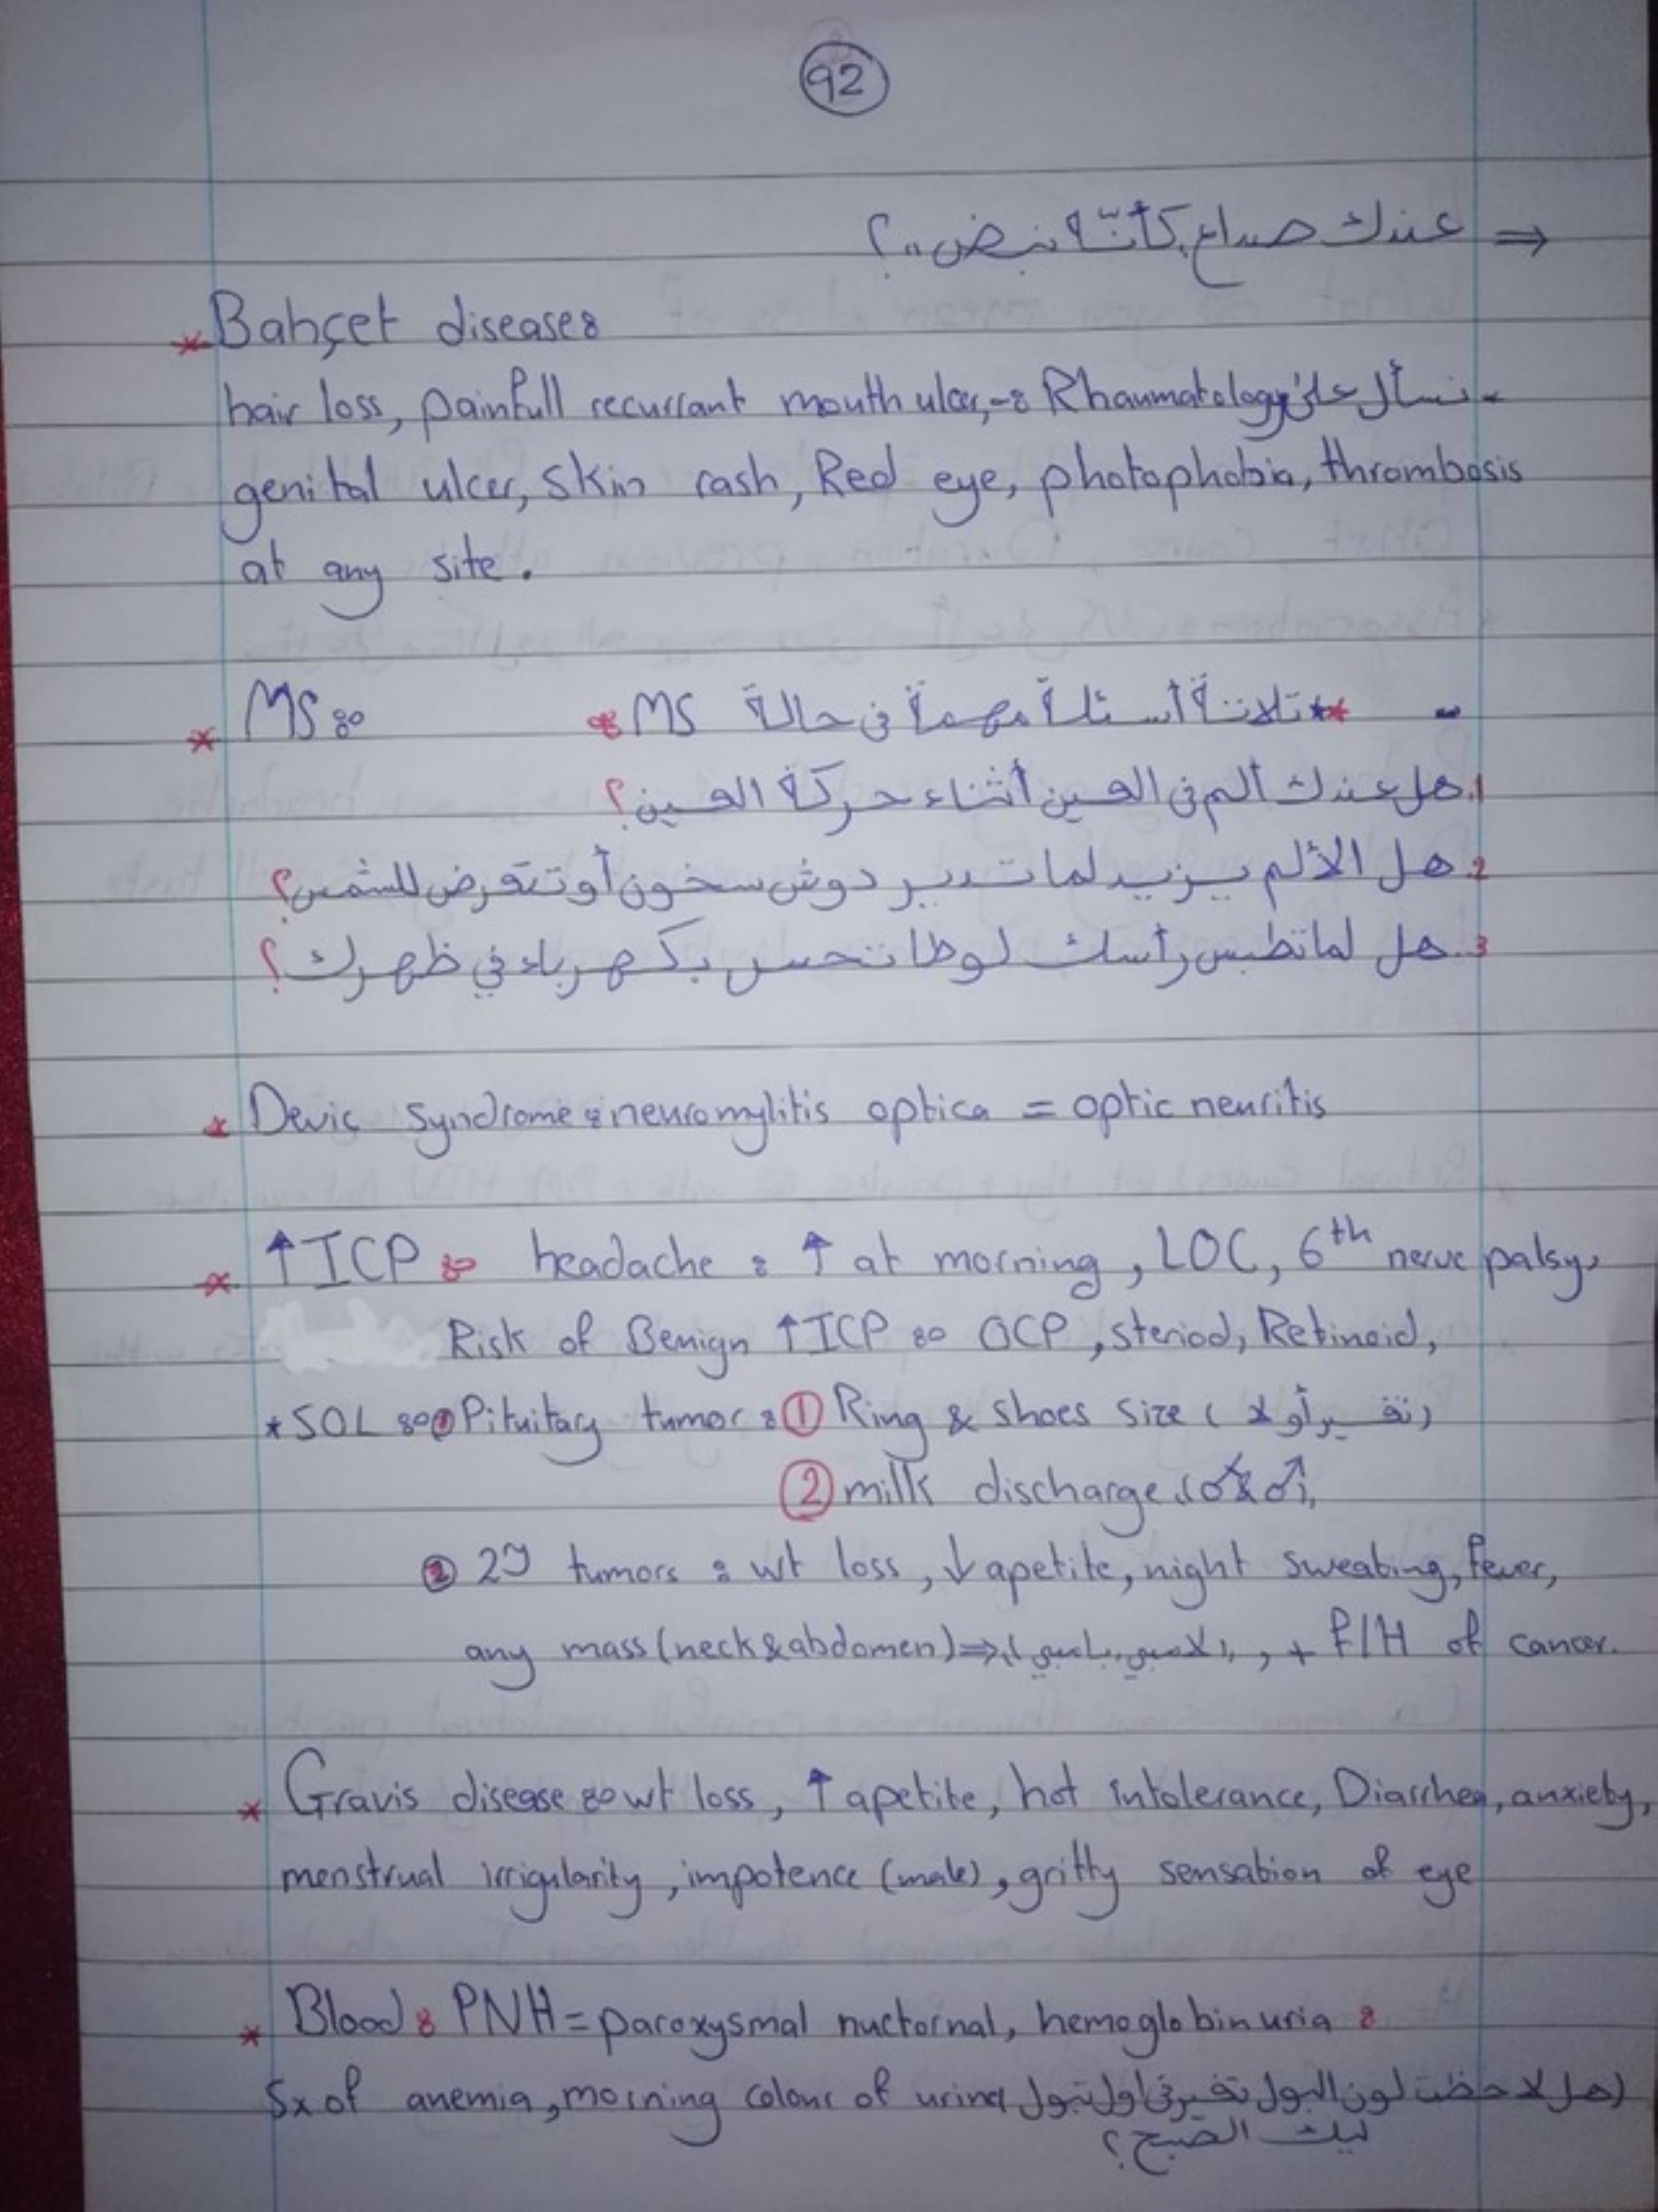 92
⇒ عندك صداع كأنّه نبض..؟
* Bahçet disease:
hair loss, painfull recurrant mouth ulcer, -: Rhaumatology نسأل على -
genital ulcer, skin rash, Red eye, photophobia, thrombosis
at any site.
* MS: ** ثلاثة أسئلة مهمة في حالة MS:
1. هل عندك ألم في العين أثناء حركة العين؟
2. هل الألم يزيد لما تدير دوش سخون أو تتعرض للشمس؟
3. هل لما تطبس رأسك لوطا تحس بكهرباء في ظهرك؟
* Devic syndrome: neuromylitis optica = optic neuritis
* ↑ICP: headache: ↑ at morning, LOC, 6th nerve palsy,
Risk of Benign ↑ICP: OCP, steriod, Retinoid,
* SOL: ① Pituitary tumor: ① Ring & shoes size (تغير أو لا)
② milk discharge (♂ & ♂),
② 2y tumors: wt loss, ↓apetite, night sweating, fever,
any mass (neck & abdomen) ⇒ , + F/H of cancer.
* Gravis disease: wt loss, ↑apetite, hot intolerance, Diarrhea, anxiety,
menstrual irrigularity, impotence (male), gritty sensation of eye
* Blood: PNH = paroxysmal nuctornal, hemoglobinuria:
Sx of anemia, morning colour of urine (هل لاحظت لون البول تغير في اول تبول
ليك الصبح؟